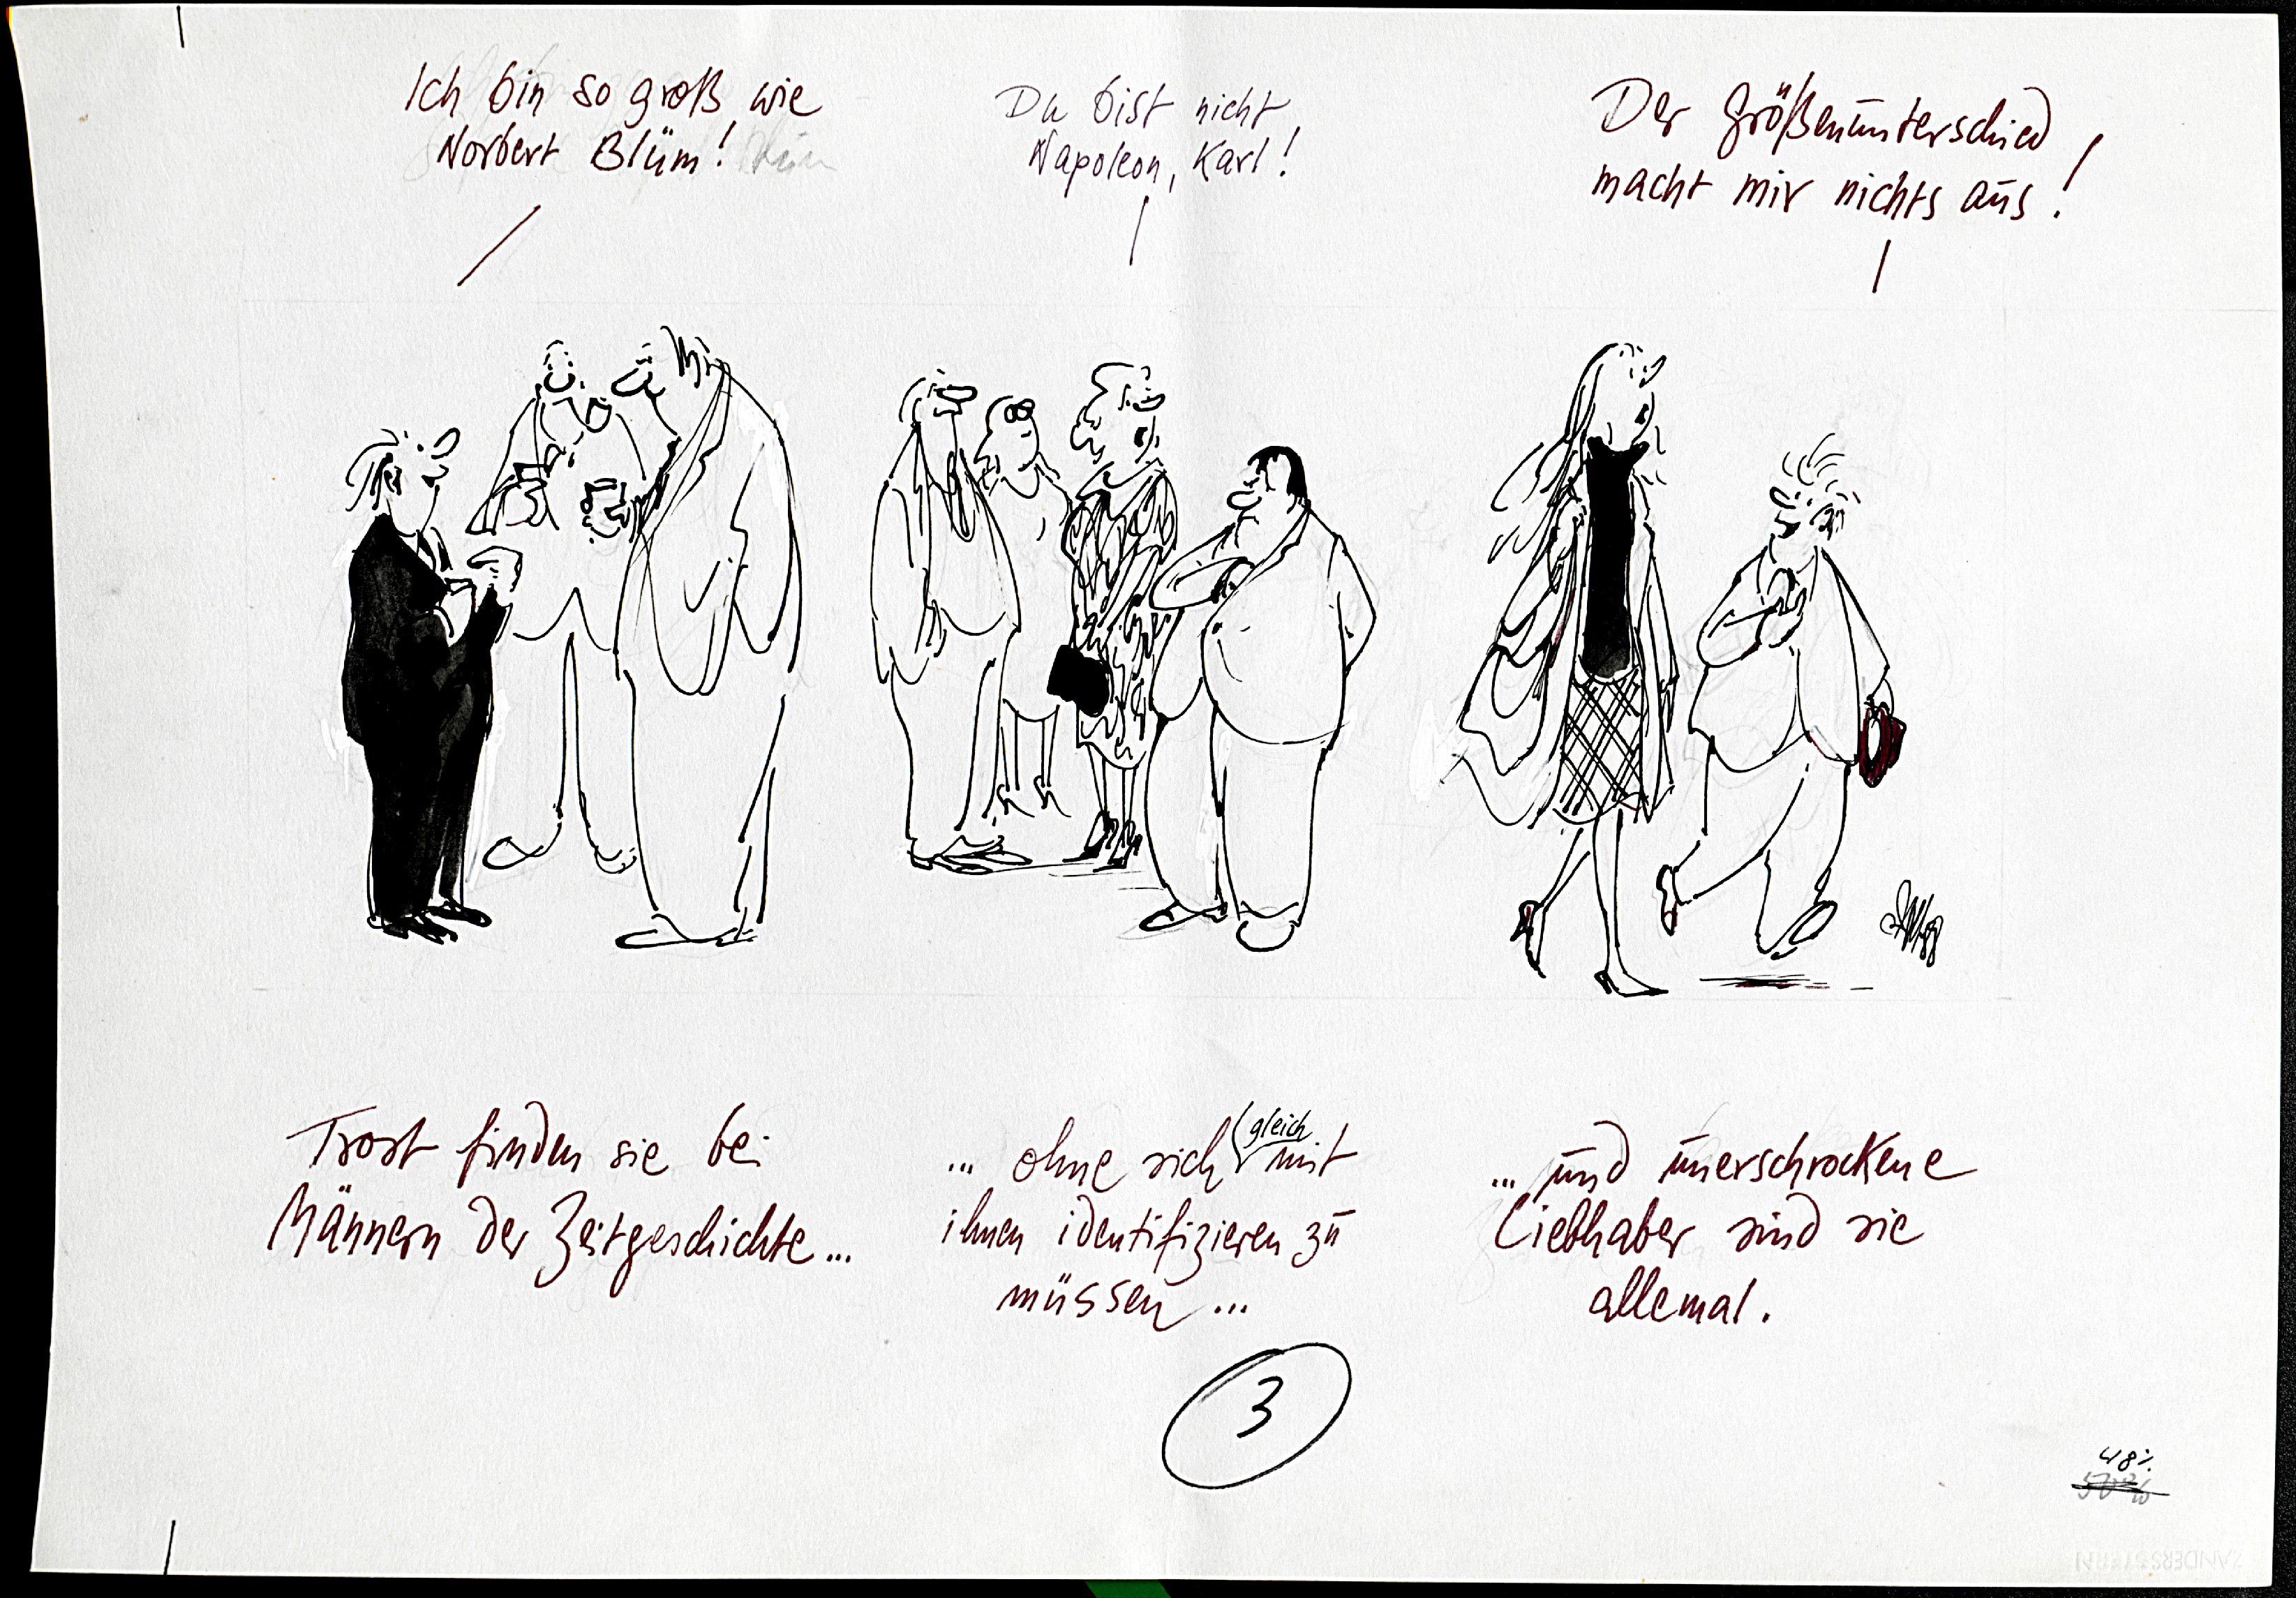 Ich bin so groß wie
Norbert Blüm!
Du bist nicht
Napoleon, Karl!
Der Größenunterschied
macht mir nichts aus!
Trost finden sie bei
Männern der Zeitgeschichte...
... ohne sich gleich mit
ihnen identifizieren zu
müssen...
... und unerschrockene
Liebhaber sind sie
allemal.
3
48%
50%
ZANDERS